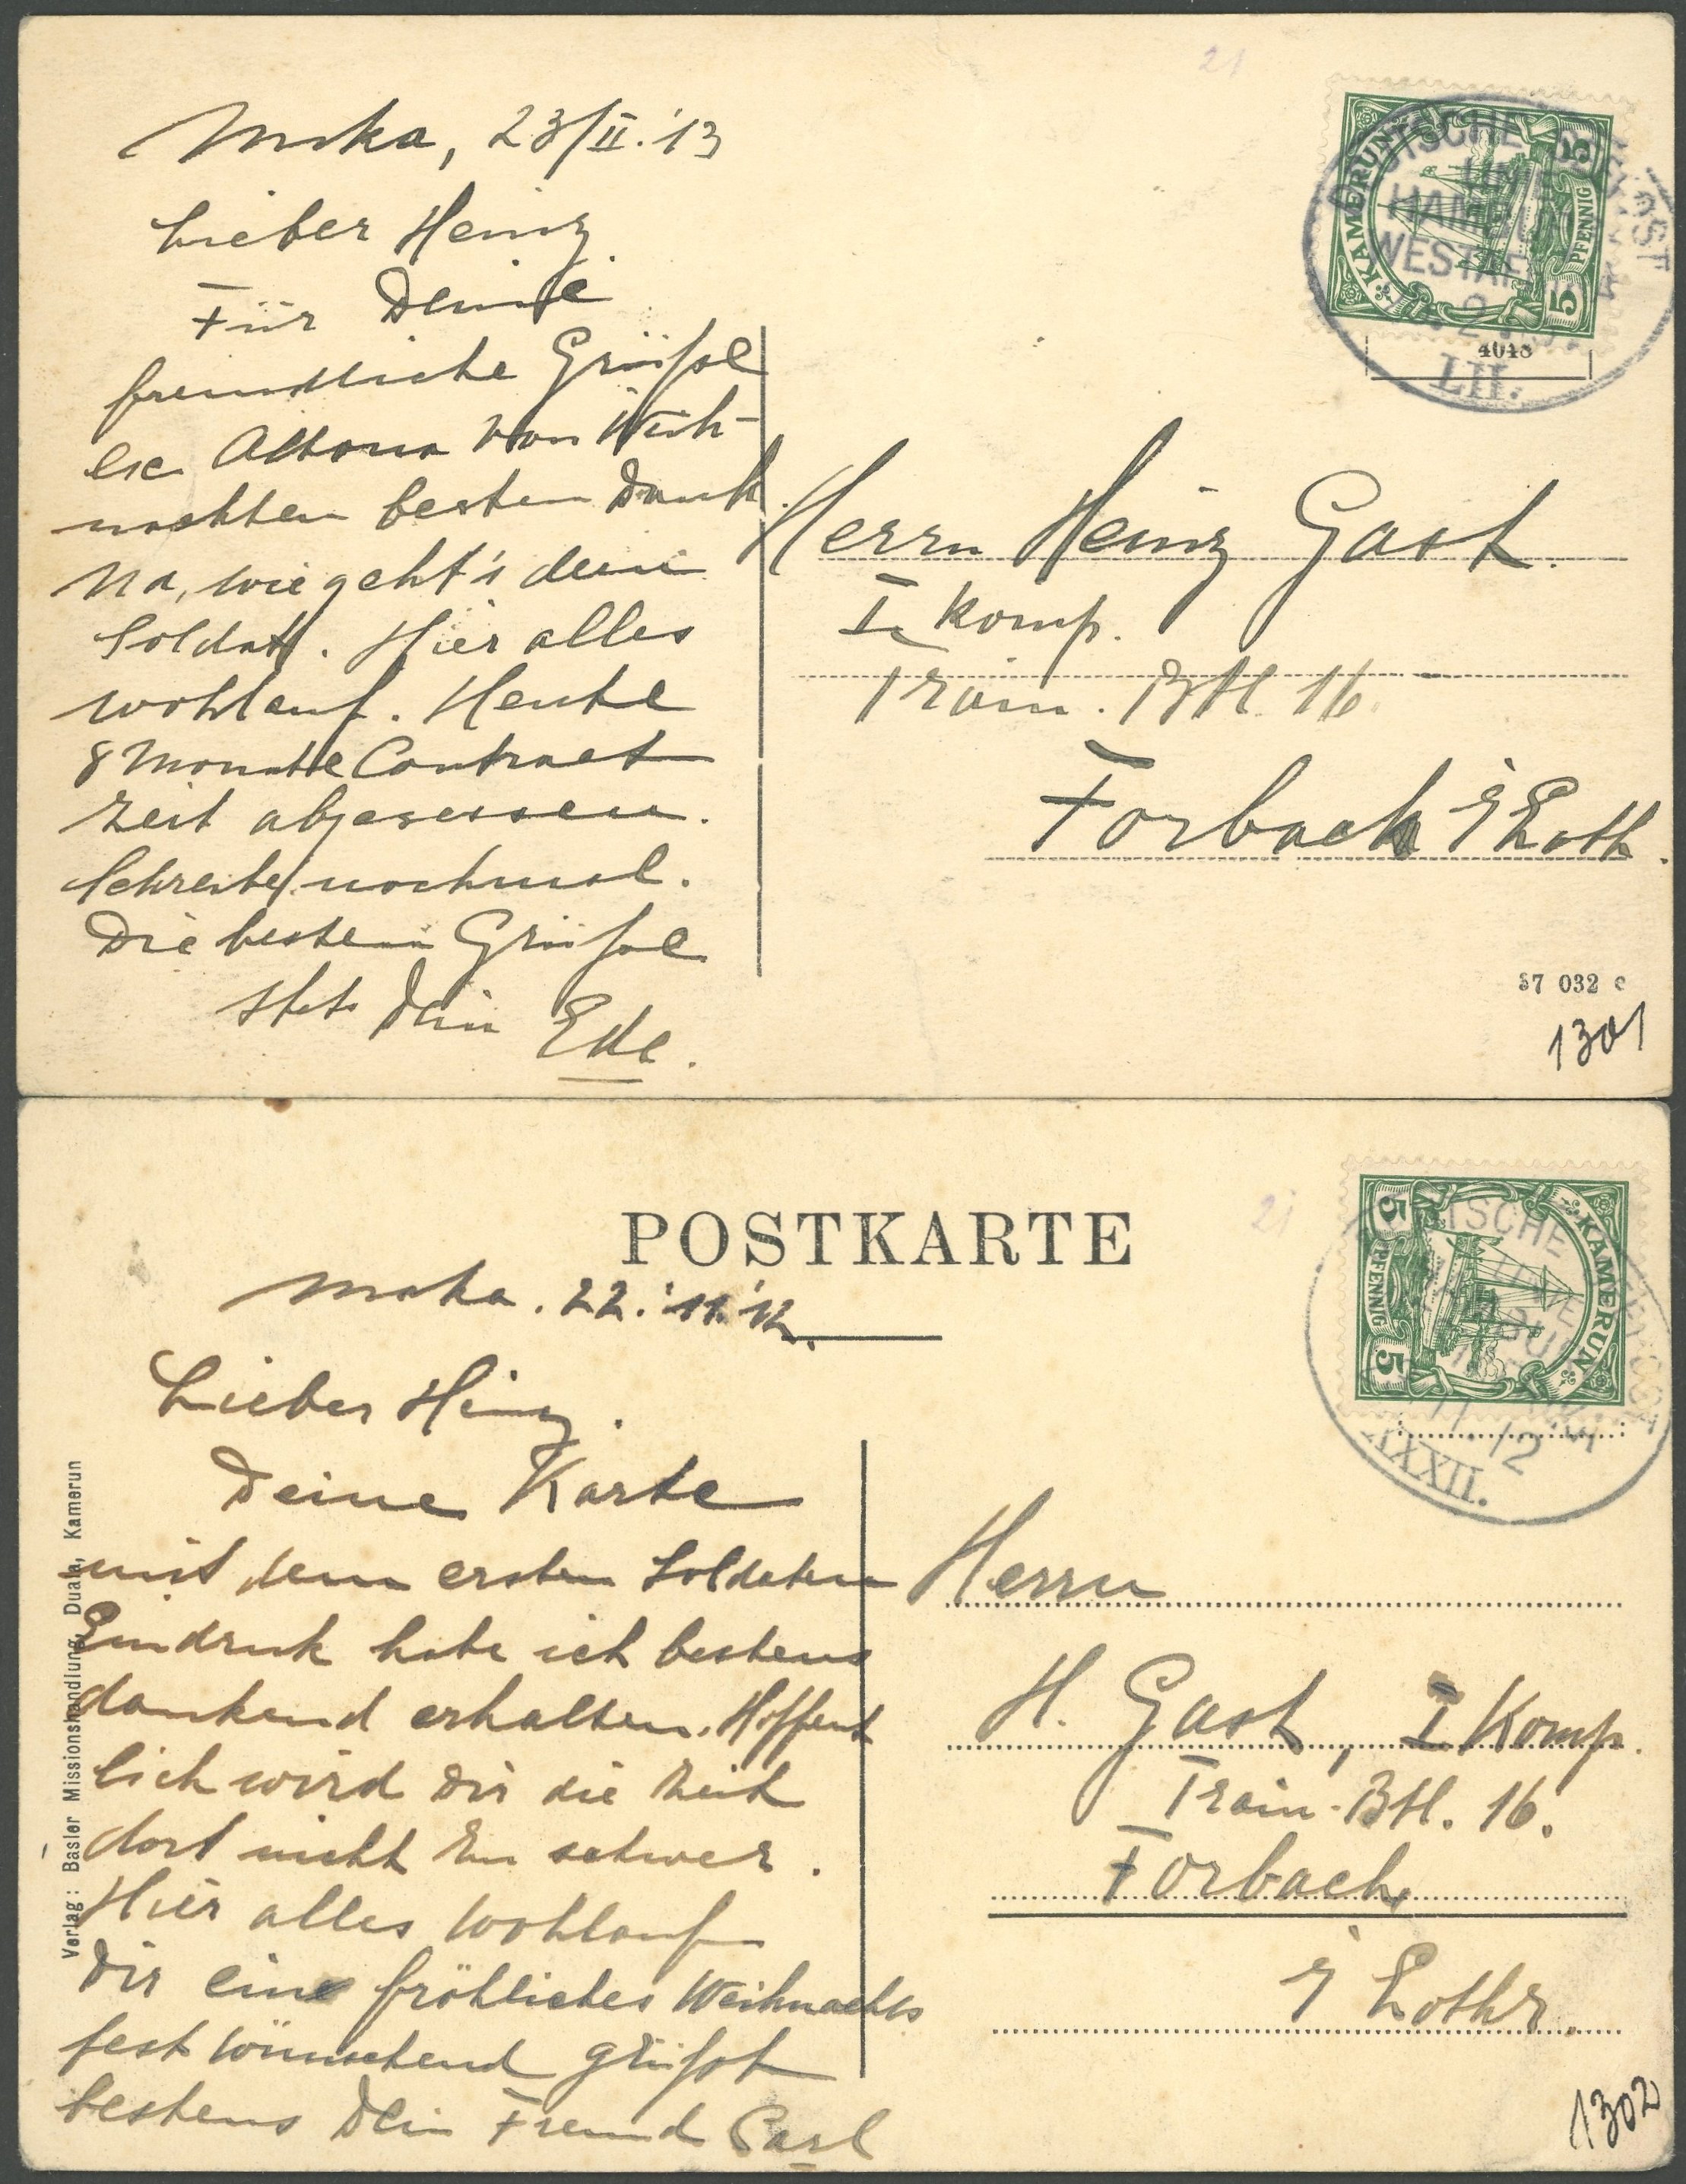 21
Moka, 23/II.'13
Lieber Heinz
Für Deine
freundliche Grüße
ex Altona von Weih-
nachten besten Dank.
Na, wie geht's dem
Soldat. Hier alles
wohlauf. Heute
8 Monate Contract
Zeit abgesessen.
Schreibe nochmal.
Die besten Grüße
stets Dein
Ede.
KAMERUN
5 PFENNIG 5
DEUTSCHE SEEPOST
LINIE
HAMBURG
WESTAFRIKA
LII.
4048
Herrn Heinz Gast.
I. Komp.
Train. Btl. 16.
Forbach i/Loth.
37 032 c
1301
POSTKARTE
21
Moka. 22.'11.'12.
Lieber Heinz.
Deine Karte
mit dem ersten Soldaten
Eindruck habe ich bestens
dankend erhalten. Hoffent
lich wird Dir die Zeit
dort nicht zu schwer.
Hier alles wohlauf
Dir ein fröhliches Weihnachts
fest wünschend grüßt
bestens Dein Freund Carl
Verlag: Basler Missionshandlung, Duala, Kamerun
KAMERUN
5 PFENNIG 5
DEUTSCHE SEEPOST
LINIE
XXXII.
Herrn
H. Gast, I Komp.
Train-Btl. 16.
Forbach
i/ Lothr.
1302